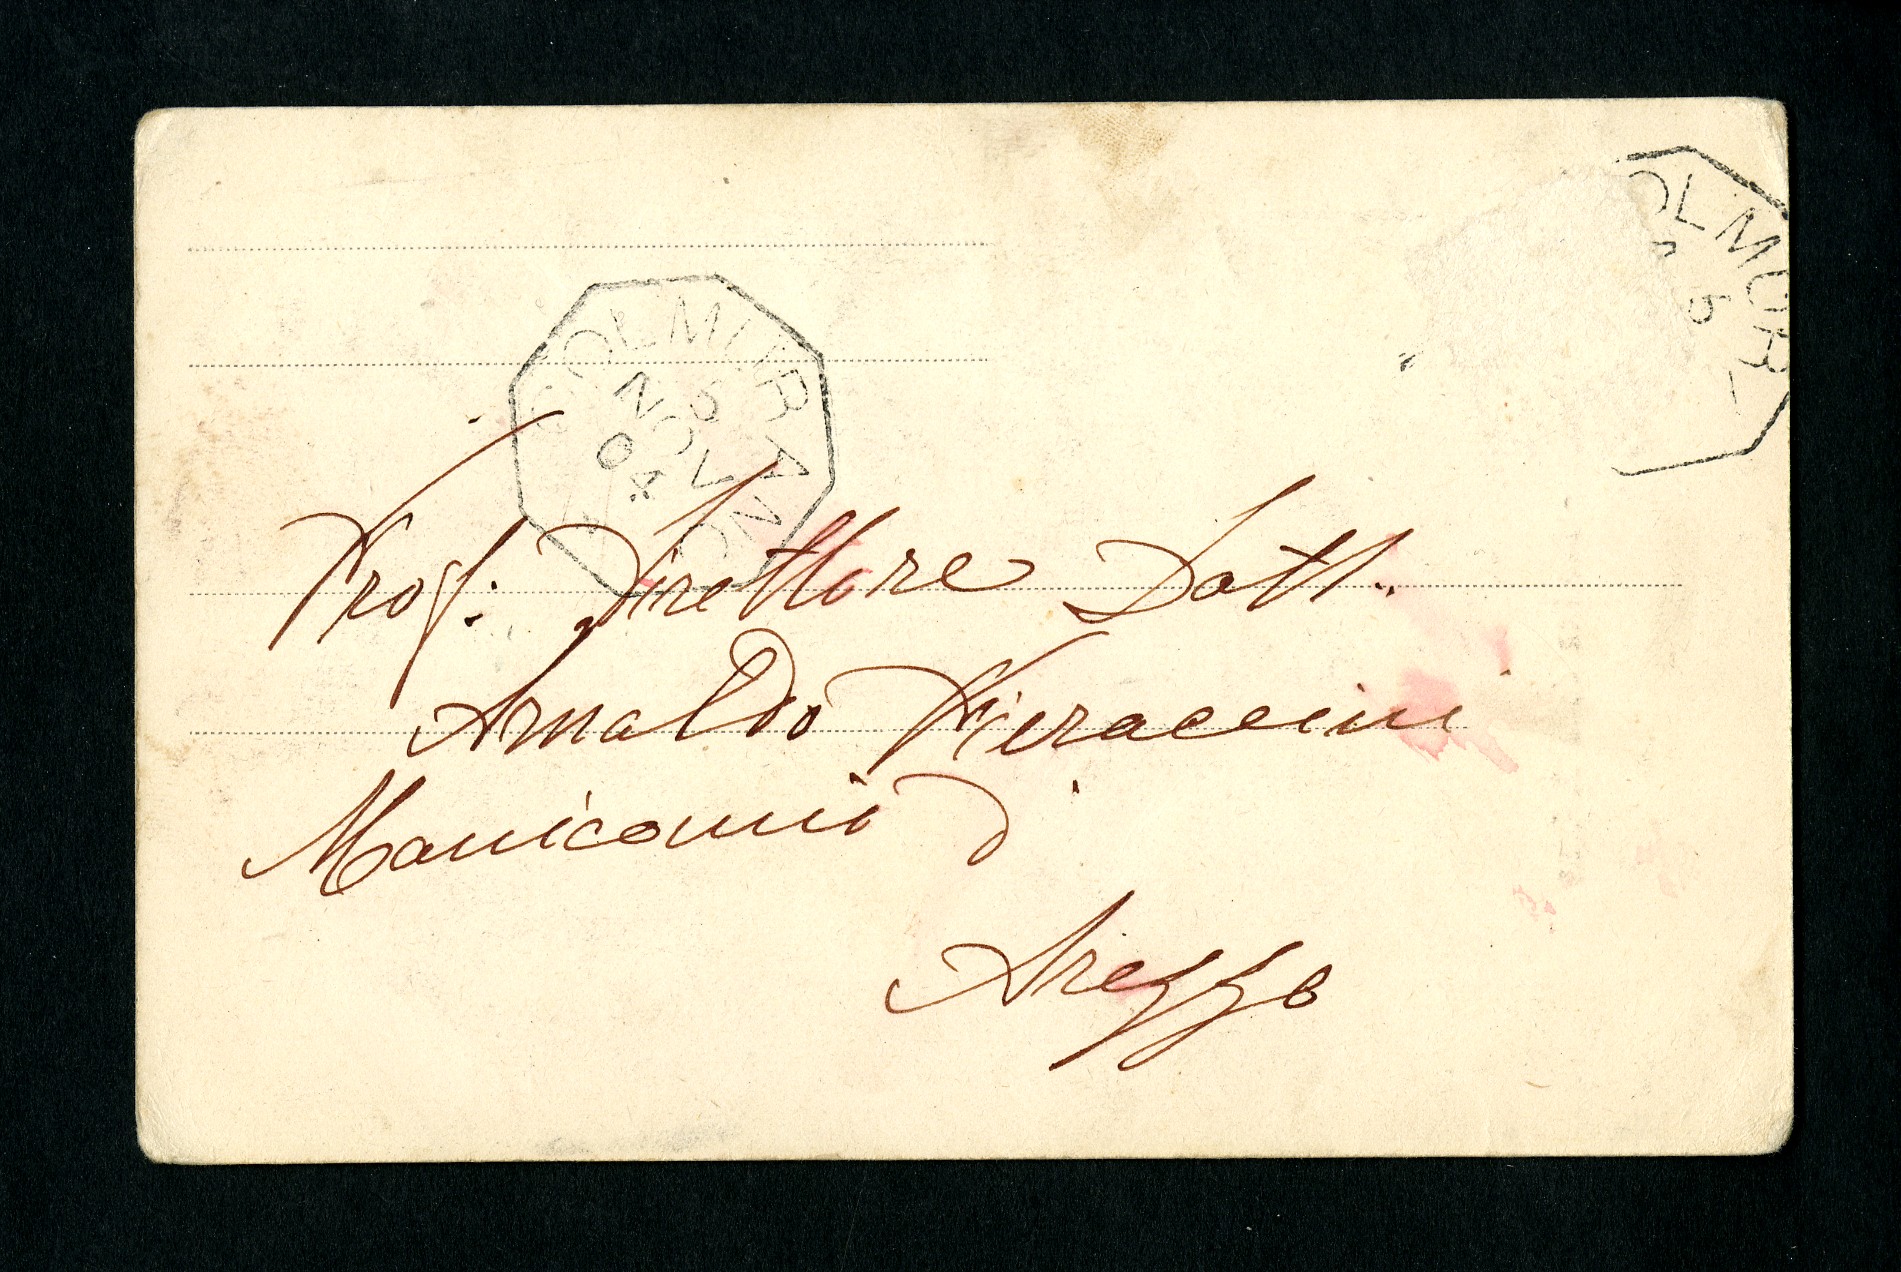 COLMURANO
5
NOV
04
OLMUR
5
Prof. Direttore Dott.
Arnaldo Pieraccini
Manicomio di
Arezzo